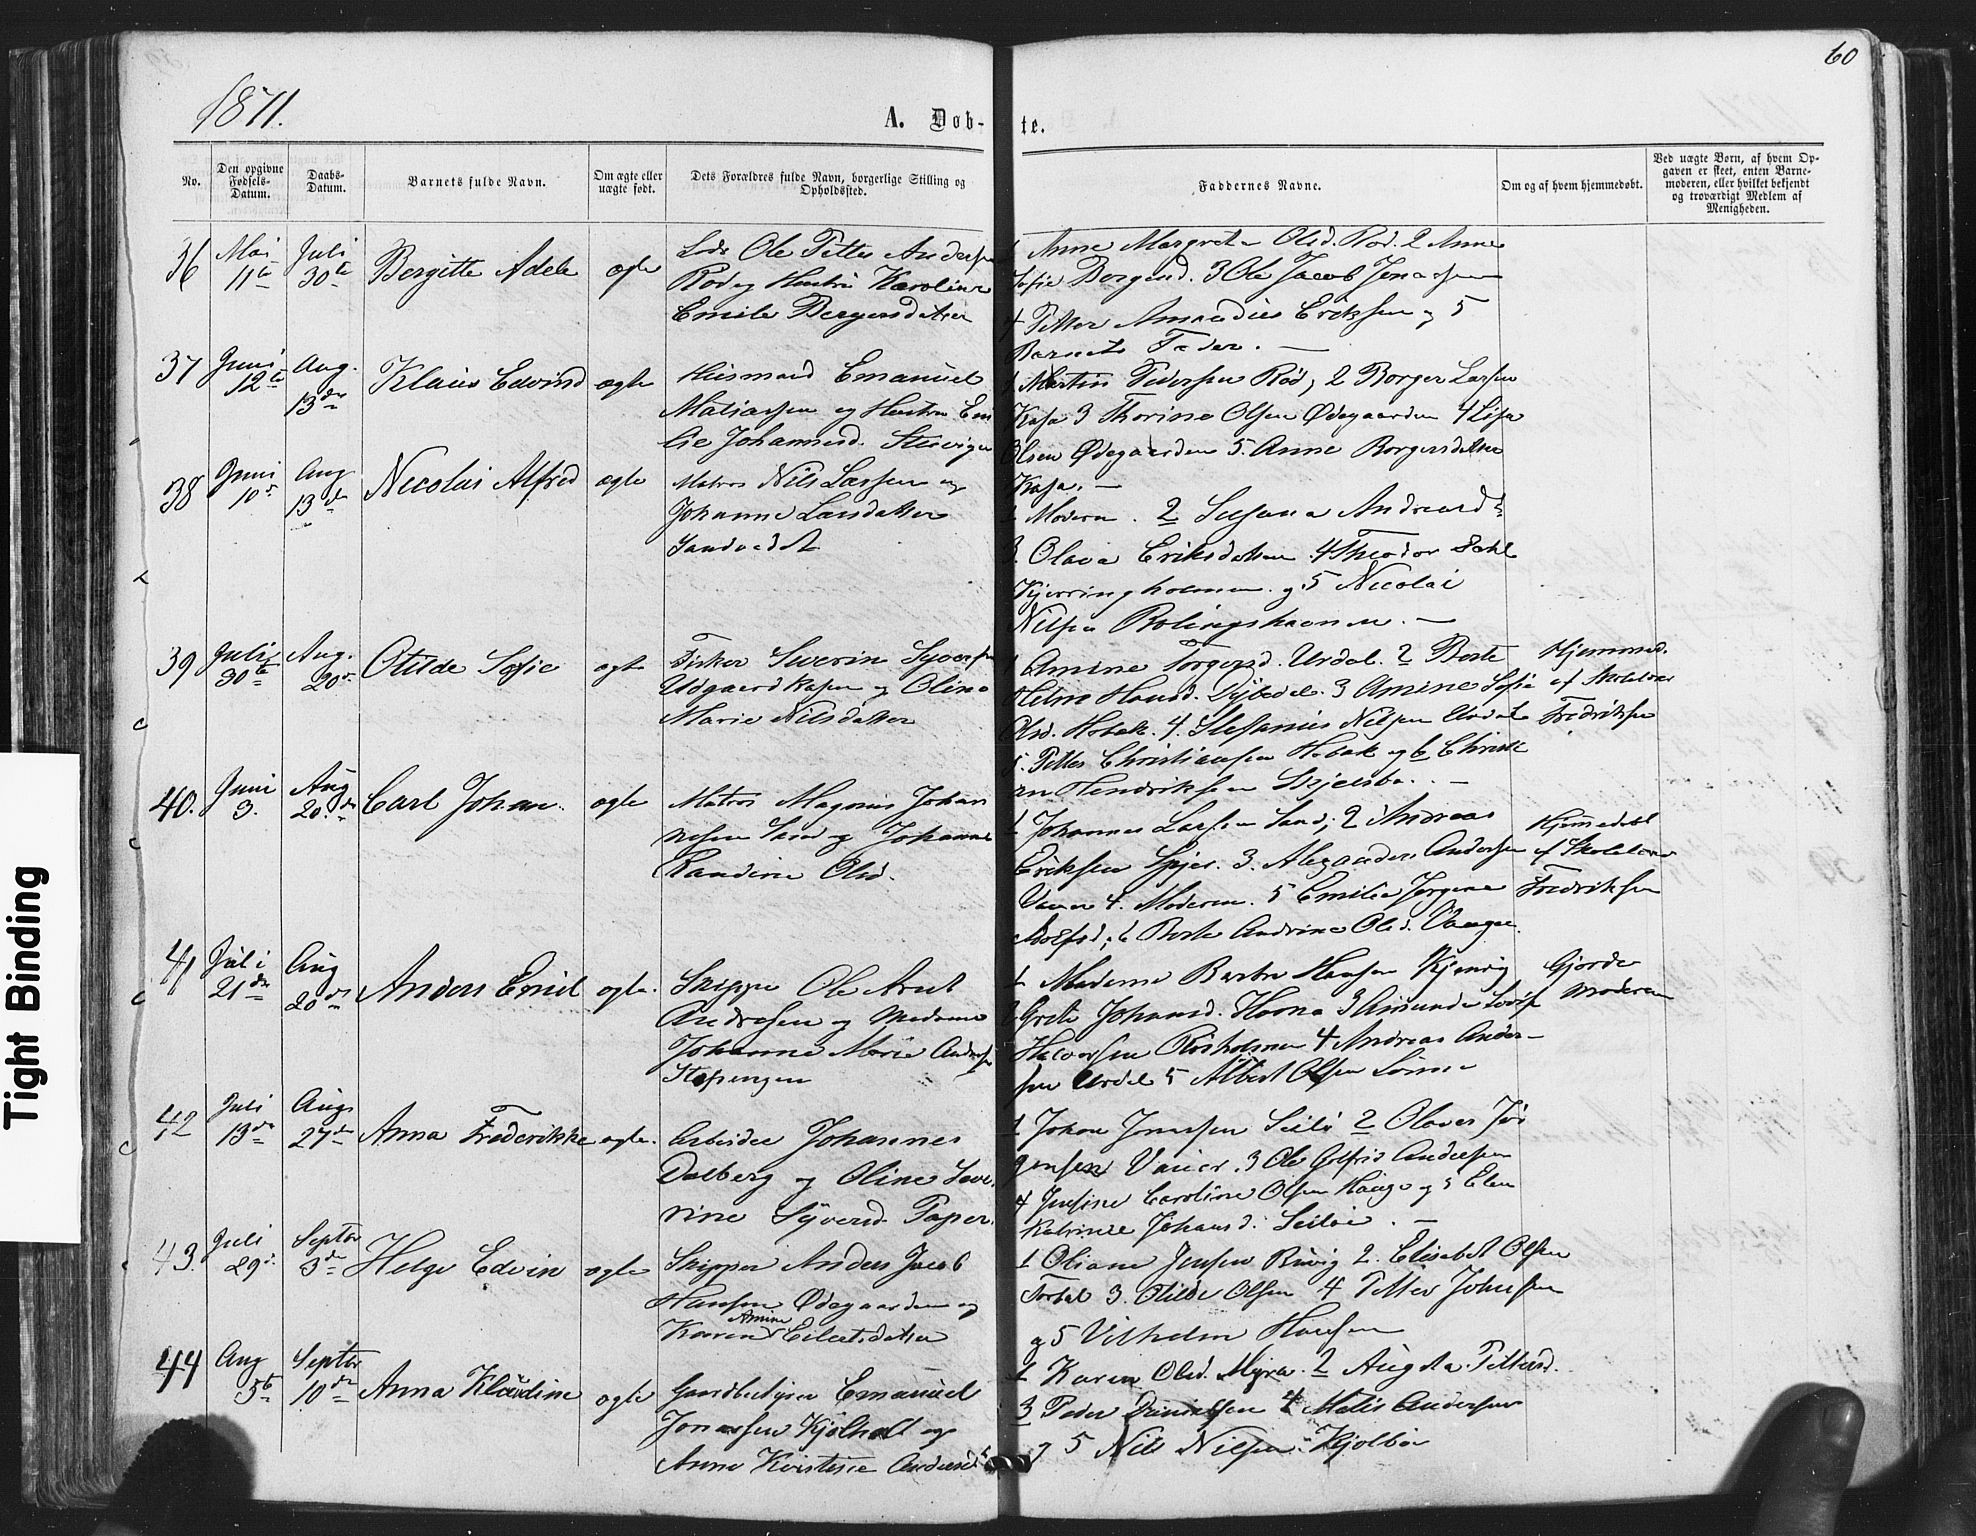 60
1871.
A. Døb-
te.
No.
Den opgivne Fødsels-Datum.
Daabs-Datum.
Barnets fulde Navn.
Om ægte eller uægte født.
Dets Forældres fulde Navn, borgerlige Stilling og Opholdssted.
Faddernes Navne.
Om og af hvem hjemmedøbt.
Ved uægte Børn, af hvem Opgaven er skeet, enten Barnemoderen, eller hvilket bekjendt og troværdigt Medlem af Menigheden.
36 Mai 11te Juli 30te Bergitte Adele ægte
Lods Ole Petter Andersen
Rød og Hustru Karoline
Emilie Børgersdatter
1 Anne Margrete Olsd. Rød. 2 Anne
Sofie Borgersd. 3 Ole Jacob Jonassen
4 Petter Amandius Eriksen og 5
Barnets Fader. —
37 Juni 12te Aug. 13de Klaus Edvind ægte
Huusmand Emanuel
Matiassen og Hustru Emi
lie Johannesd. Stuevigen
1 Martin Pedersen Rød, 2 Borger Larsen
Kasa 3 Thorine Olsen Ødegaarden 4 Lisa
Olsen Ødegaarden 5. Anne Borgersdatter
Kasa. —
38 Juni 10de Aug 13de Nicolai Alfred ægte
Matros Nils Larsen og
Johanne Larsdatter
1 Moderen. 2 Susanna Andreasd.
3. Olava Eriksdatter 4 Theodor Dahl
Kjerringholmen og 5 Nicolai
Nilsen
39 Juli 30te Aug. 20de Otilde Sofie ægte
Fisker Severin Syversen
Udgaardkasen og Oline
Marie Nilsdatter
1 Amine Torgersd. Urdal. 2 Berte
Helene Hansd. Dybedal. 3 Amine Sofie
Olsd. Hobæk. 4. Stefanius Nilsen Urdal
5. Petter Christiansen Hobæk og 6 Christi
an Hendriksen Skjelsbo. —
Hjemmed.
af Skolelærer
Fredriksen
40. Juni 3. Aug 20de Carl Johan ægte
Matros Magnus Johan
nesen Sand og Johanne
Randine Olsd.
1 Johannes Larsen Sand, 2 Andreas
Eriksen Spjær. 3. Alexander Andersen
4. Moderen. 5 Emilie Jørgine
Adolfsd, 6 Berte Andrine Olsd.
Hjemmedøbt
af Skolelærer
Fredriksen
41 Juli 21de Aug 20de Anders Emil ægte.
Skipper Ole Arnt
Andresen og Madame
Johanne Marie Andersen
1 Madame Berthe Hansen Kjenvig
2 Grete Johansd. Horna 3 Amunda Lovise
Halvorsen Risholmen 4 Andreas Ander-
sen Urdal 5 Albert Olsen
Gjorde
moderen
42 Juli 13de Aug 27de Anna Frederikke ægte.
Arbeider Johannes
Dalberg og Oline Seve
rine Syversd. Paper.
1 Johan Jonassen Seilø 2 Olaves Jør
gensen 3 Ole Andersen
4 Jensine Caroline Olsen Hauge og 5 Elen
Katrine Johansd. Seiløe. —
43. Juli 29de Septbr 3de Helge Edvin ægte
Skipper Anders Jacob
Hansen Ødegaarden og
Karen Amine Eilertsdatter
1 Oliane Jensen Buvig 2. Elisabet Olsen
3. Otilde Olsen 4 Petter Johnsen
og 5 Vilhelm Hansen
44 Aug 5te Septbr 10de Anna Klaudine ægte
Gaardbestyrer Emanuel
Jonassen Kjølholt og
Anne Kristine Andersd.
1 Karen Olsd. Myra. 2 Augsta Pettersd.
3 Peder Danielsen 4 Matis Andersen
og 5 Nils Nilsen Kjølbo
Tight Binding